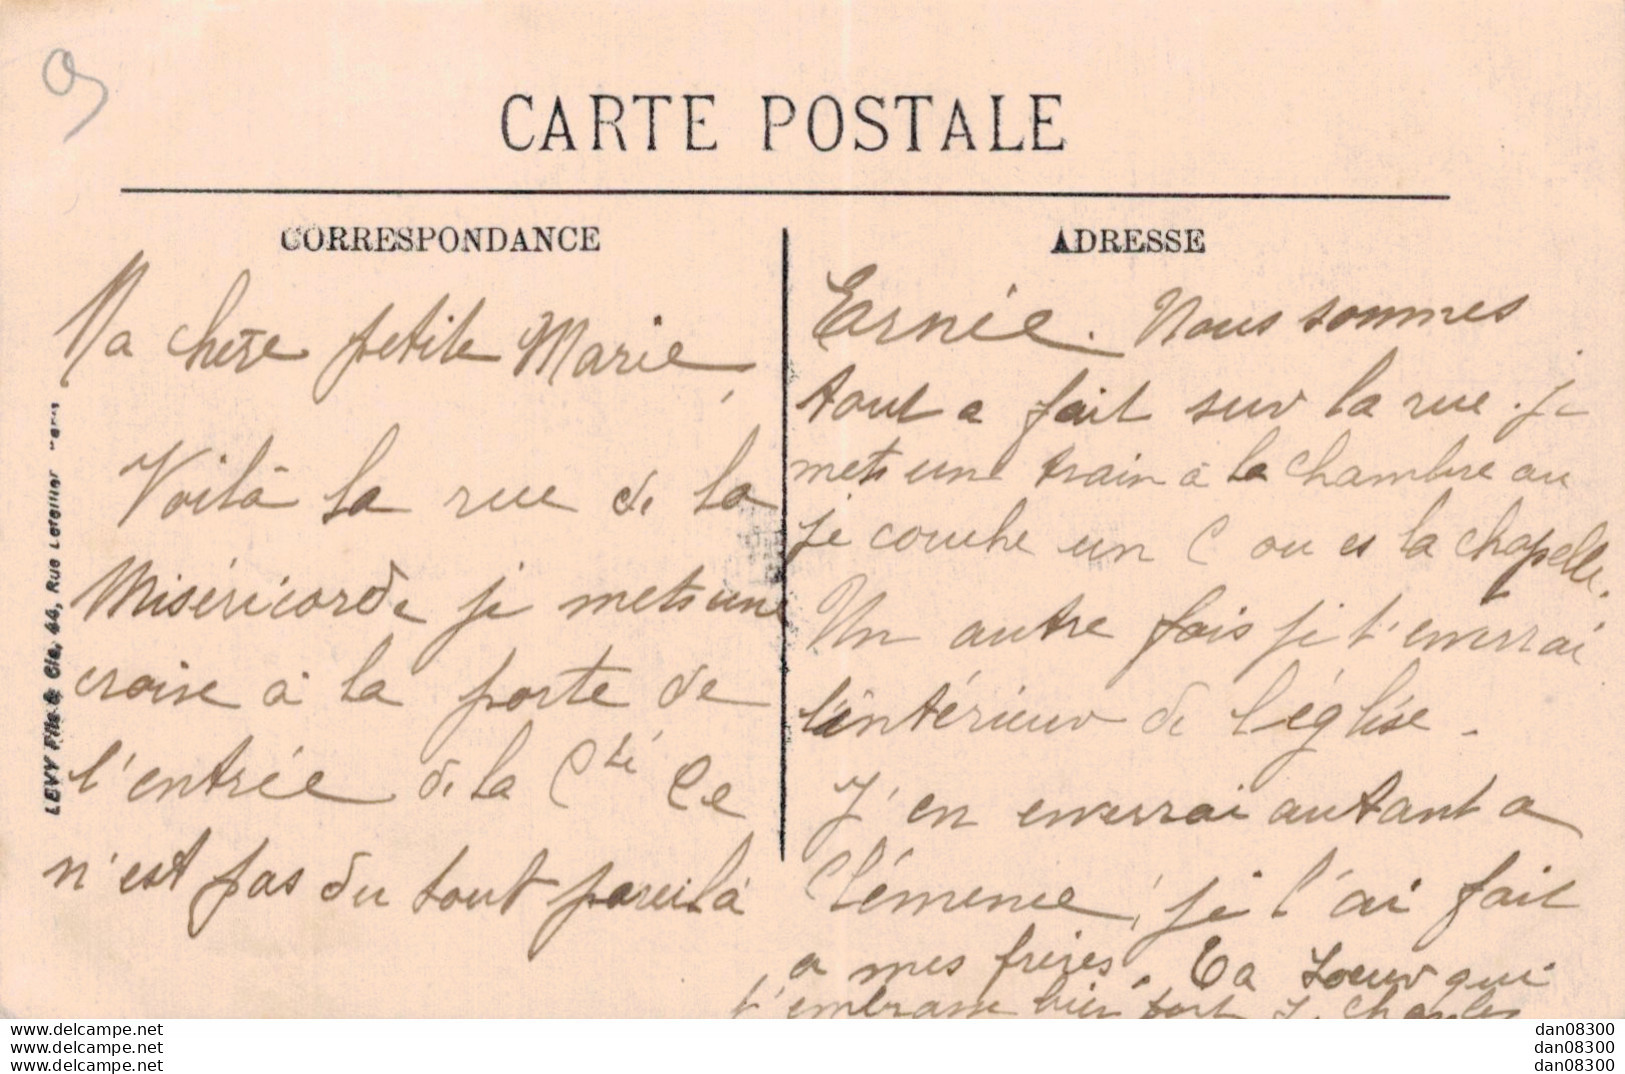 CARTE POSTALE
CORRESPONDANCE
Ma chère petite Marie,
Voilà la rue de la
Miséricorde je mets une
croise à la porte de
l'entrée de la Cté Ce
n'est pas du tout pareil à
ADRESSE
Ernée. Nous sommes
tout a fait sur la rue. je
mets un train à la chambre au
je couche un C ou es la chapelle.
Un autre fois je t'enverrai
l'intérieur de l'église.
J'en enverrai autant a
Clémence, je l'ai fait
a mes frères. Ta soeur qui
t'embrasse bien fort J. Charles
LEVY Fils & Cie, 44, Rue Letellier Paris
dan08300
dan08300
dan08300
www.delcampe.net
www.delcampe.net
www.delcampe.net